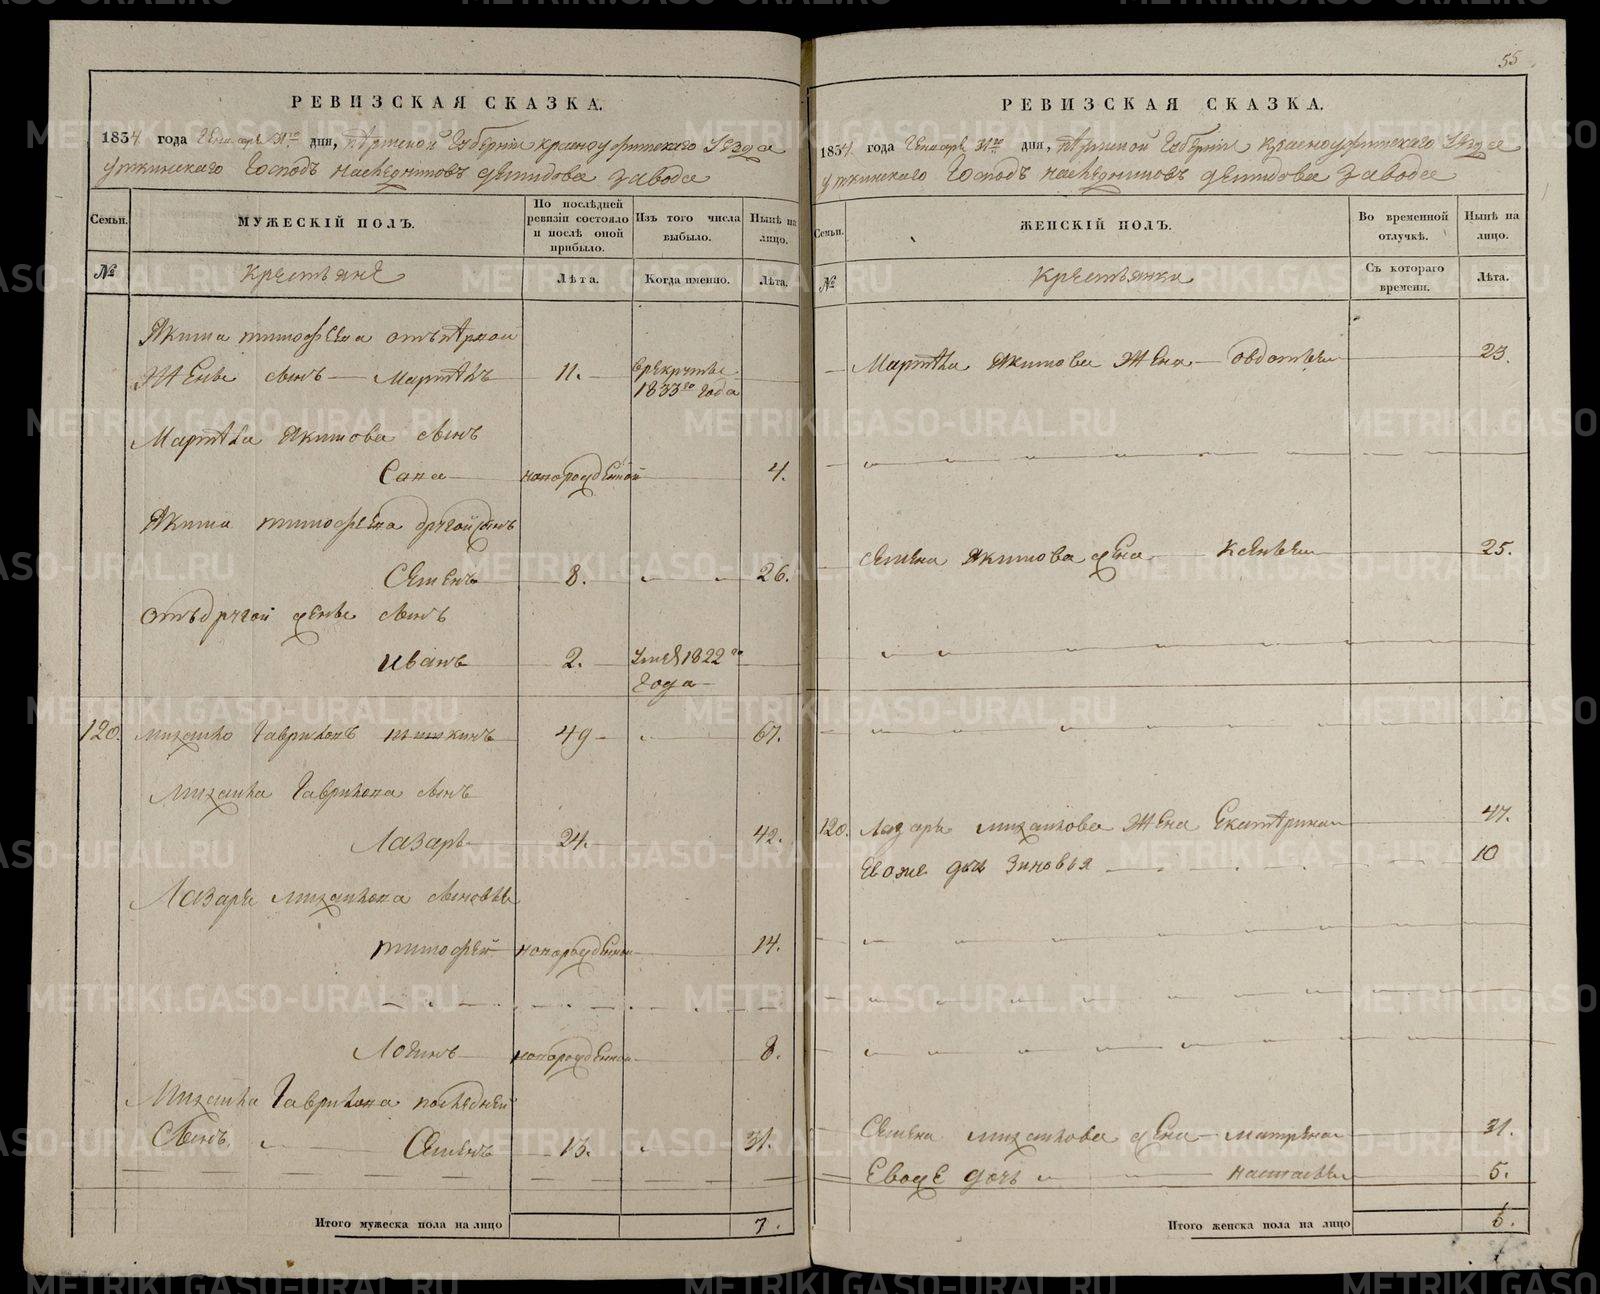 55
РЕВИЗСКАЯ СКАЗКА.
1834 года Генваря 31го дни, Пермской Губернiи Красноуфимскаго Уезда
Уткинскаго Господъ наследниковъ Демидова завода
Семьи. МУЖЕСКIЙ ПОЛЪ. По послѣдней ревизiи состояло и послѣ оной прибыло. Изъ того числа выбыло. Нынѣ на лицо.
№ Крестьяне Лѣта. Когда именно. Лѣта.
Якима Тимофеева отъ первой
жены сынъ Марткъ 11. в рекруты
1833го года
Сынъ
Сапа новорожденной 4.
Якима Тимофеева другой сынъ
Семенъ 8. 26.
отъ другой жены сынъ
Иванъ 2. Умеръ 1822го
года
120. Михайло Гавриловъ Шишкинъ 49 67.
Михайла Гаврилова сынъ
Лазарь 24. 42.
Лазаря Михайлова сыновья
Тимофей новорожденной 14.
Логинъ новорожденной 8.
Михайла Гаврилова последней
сынъ Семенъ 13. 31.
Итого мужеска пола на лицо 7.
РЕВИЗСКАЯ СКАЗКА.
1834 года Генваря 31го дни, Пермской Губернiи Красноуфимскаго Уезда
Уткинскаго Господъ наследниковъ Демидова завода
Семьи. ЖЕНСКIЙ ПОЛЪ. Во временной отлучкѣ. Нынѣ на лицо.
№ Крестьянки Съ котораго времени. Лѣта.
Якимова жена Овдотья 23.
Семена Якимова жена Ксенья 25.
120. Лазаря Михайлова жена Екатерина 47.
Евоже дочь Зиновья 10
Семена Михайлова жена Матрена 31.
Евоже дочь Настасья 5.
Итого женска пола на лицо 6.
METRIKI.GASO-URAL.RU